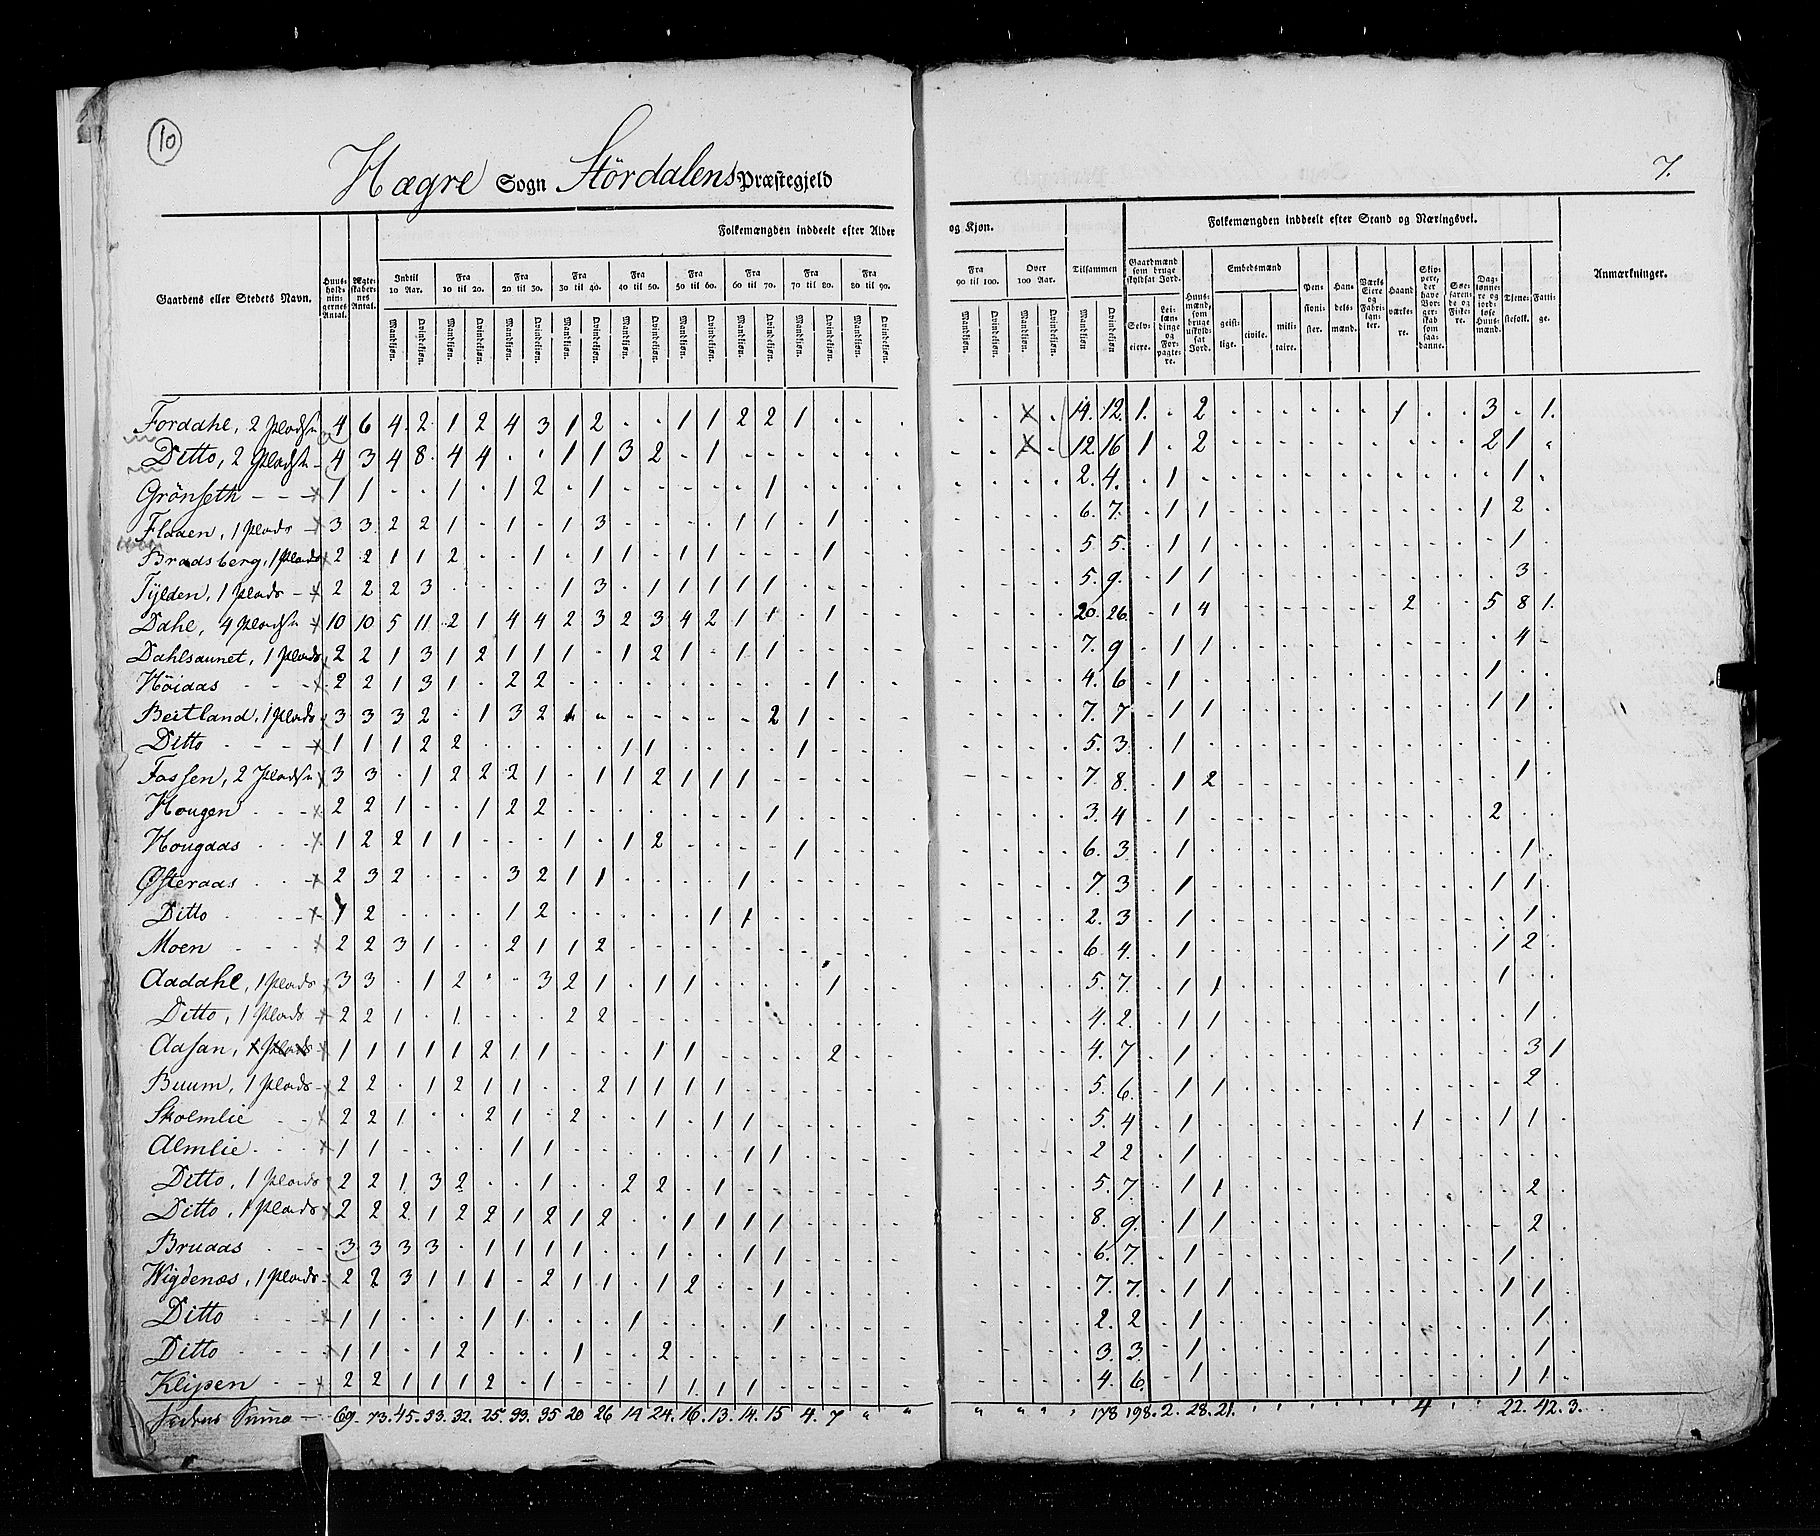 10
Hægre Sogn Stördalens Præstegjeld
7.
Folkemængden inddeelt efter Alder og Kjøn.
Folkemængden inddeelt efter Stand og Næringsvei.
Gaardens eller Stedets Navn.
Huusholdningernes Antal.
Ægteskabernes Antal.
Indtil 10 Aar.
Fra 10 til 20.
Fra 20 til 30.
Fra 30 til 40.
Fra 40 til 50.
Fra 50 til 60.
Fra 60 til 70.
Fra 70 til 80.
Fra 80 til 90.
Fra 90 til 100.
Over 100 Aar.
Tilsammen
Mandkjøn. Qvindekjøn.
Gaardmænd som bruge skyldsat Jord.
Selveiere.
Leilændinge og Forpagtere.
Huusmænd, som bruge uskyldsat Jord.
Embedsmænd
geistlige. civile. militaire.
Pensionister.
Handelsmænd.
Værks Eiere og Fabrikanter.
Haandværkere.
Skippere, der have Borgerskab som saadanne.
Søefarende og Fiskere.
Daglønnere og jordløse Huusmænd.
Tjenestefolk.
Fattige.
Anmærkninger.
Fordahl, 2 Pladse 4 6 4 2 1 2 4 3 1 2 . . 1 1 2 2 1 . . . . . x . 14. 12. 1. . 2 . . . . . . 1 . . 3 . 1.
Ditto, 2 Pladse 4 3 4 8 4 4 . . 1 1 3 2 . 1 . . . . . . . . x . 12. 16 1 . 2 . . . . . . . . . 2 1 .
Grönseth x 1 1 . . 1 . 1 2 . 1 . . . . . 1 . . . . 2. 4. . 1 . . . . . . . . . . . 1 .
Flaaen, 1 Plads x 3 3 2 2 1 . 1 . 1 3 . . . . 1 1 . 1 . . 6. 7. . 1 1 . . . . . . . . . 1 2 .
Braadsberg, 1 Plads x 2 2 1 1 2 . . 1 . 1 1 . 1 1 . . . 1 . . 5 5. . 1 1 . . . . . . . . . . 1 .
Tylden, 1 Plads x 2 2 2 3 . . . . 1 3 . 1 1 1 1 1 . . . . 5. 9. . 1 1 . . . . . . . . . . 3 .
Dahl, 4 Pladse x 10 10 5 11 2 1 4 4 2 3 2 3 4 2 1 1 . 1 . . 20. 26. . 1 4 . . . . . . 2 . . 5 8 1.
Dahlsaunet, 1 Plads x 2 2 1 3 1 2 1 1 1 . 1 2 1 . 1 1 . . . . 7. 9 . 1 1 . . . . . . . . . . 4 .
Höiaas x 2 2 1 3 1 . 2 2 . . . . . . . . . 1 . . 4. 6 . 1 . . . . . . . . . . 1 . .
Beitland, 1 Plads 3 3 3 2 . 1 3 2 . . . . . . . 2 1 . . . 7. 7 . 1 1 . . . . . . . . . 1 1 .
Ditto x 1 1 1 2 2 . . . . . 1 1 . . . . 1 . . . 5. 3. . 1 . . . . . . . . . . . . .
Fossen, 2 Pladse x 3 3 . 1 2 2 2 1 . 1 1 2 1 1 1 . . . . . 7. 8. . 1 2 . . . . . . . . . . 1 .
Hougen x 2 2 1 . . 1 2 2 . . . . . . . 1 . . . . 3. 4 . 1 . . . . . . . . . . 2 . .
Hougaas x 1 2 2 1 1 . . . 1 . 1 2 . . . . 1 . . . 6. 3. . 1 . . . . . . . . . . . 1 .
Østeraas x 2 3 2 . . . 3 2 1 1 . . . . 1 . . . . . 7. 3 . 1 . . . . . . . . . . 1 1 .
Ditto x 1 2 . . . . 1 2 . . . . . 1 1 . . . . . 2. 3 . 1 . . . . . . . . . . . 1 .
Moen x 2 2 3 1 . . 2 1 1 2 . . . . . . . . . . 6. 4. . 1 . . . . . . . . . . 1 2 .
Aadahl, 1 Plads x 3 3 . 1 2 . . 3 2 1 . 1 1 . . . . 1 . . 5. 7. . 1 1 . . . . . . . . . 1 . .
Ditto, 1 Plads x 2 2 1 . 1 . . . 2 2 . . . . . . . . . . 4. 2. . 1 1 . . . . . . . . . . 1 .
Aasan, x 1 1 1 1 1 2 1 1 . . . 1 1 . . . . 2 . . 4. 7 . 1 . . . . . . . . . . . 3 1
Buum, 1 Plads x 2 2 . 1 2 1 1 . . 2 1 1 1 1 . . . . . . 5. 6. . 1 1 . . . . . . . . . . 2 .
Skolmlie x 2 2 1 . . 2 1 . 2 . . 1 . 1 1 . . . . . 5. 4 . 1 . . . . . . . 1 . . 1 1 .
Almlie x 1 1 . . . . 1 1 . . . . . . 1 1 . . . . 2 2 . 1 . . . . . . . . . . . . .
Ditto, 1 Plads x 2 2 1 3 2 . . 1 . . 2 2 . 1 . . . . . . 5. 7 . 1 1 . . . . . . . . . . 2 .
Ditto, 1 Plads x 2 2 2 1 2 2 1 2 1 2 . . 1 1 1 1 . . . . 8. 9. . 1 1 . . . . . . . . . . 2 .
Bruaas 3 3 3 3 . 1 1 1 1 . . 1 . . 1 1 . . . . 6. 7. . 1 . . . . . . . . . . 1 . .
Wigdenæs, 1 Plads 2 2 3 1 1 1 . 2 1 1 . 1 2 . . 1 . . . . 7. 7. . 1 1 . . . . . . . . . 1 1 .
Ditto x 1 1 . . . 1 1 . . . 1 . . . . 1 . . . . 2. 2 . 1 . . . . . . . . . . . 1 .
Ditto x 1 1 . 1 2 . . . 1 . . 2 . . . . . . . . 3. 3. . 1 . . . . . . . . . . . 1 .
Klipen x 2 2 1 1 1 2 . 1 . . . 1 1 1 1 . . . . . 4. 6. . 1 . . . . . . . . . . 1 1 .
Summa 69. 73. 45. 53. 32. 25. 33. 35 20 26. 14 24. 16. 13. 14. 15 4. 7 " " " " " . 178 198. 2. 28. 21. . . . . . . 4 . . 22. 42. 3.